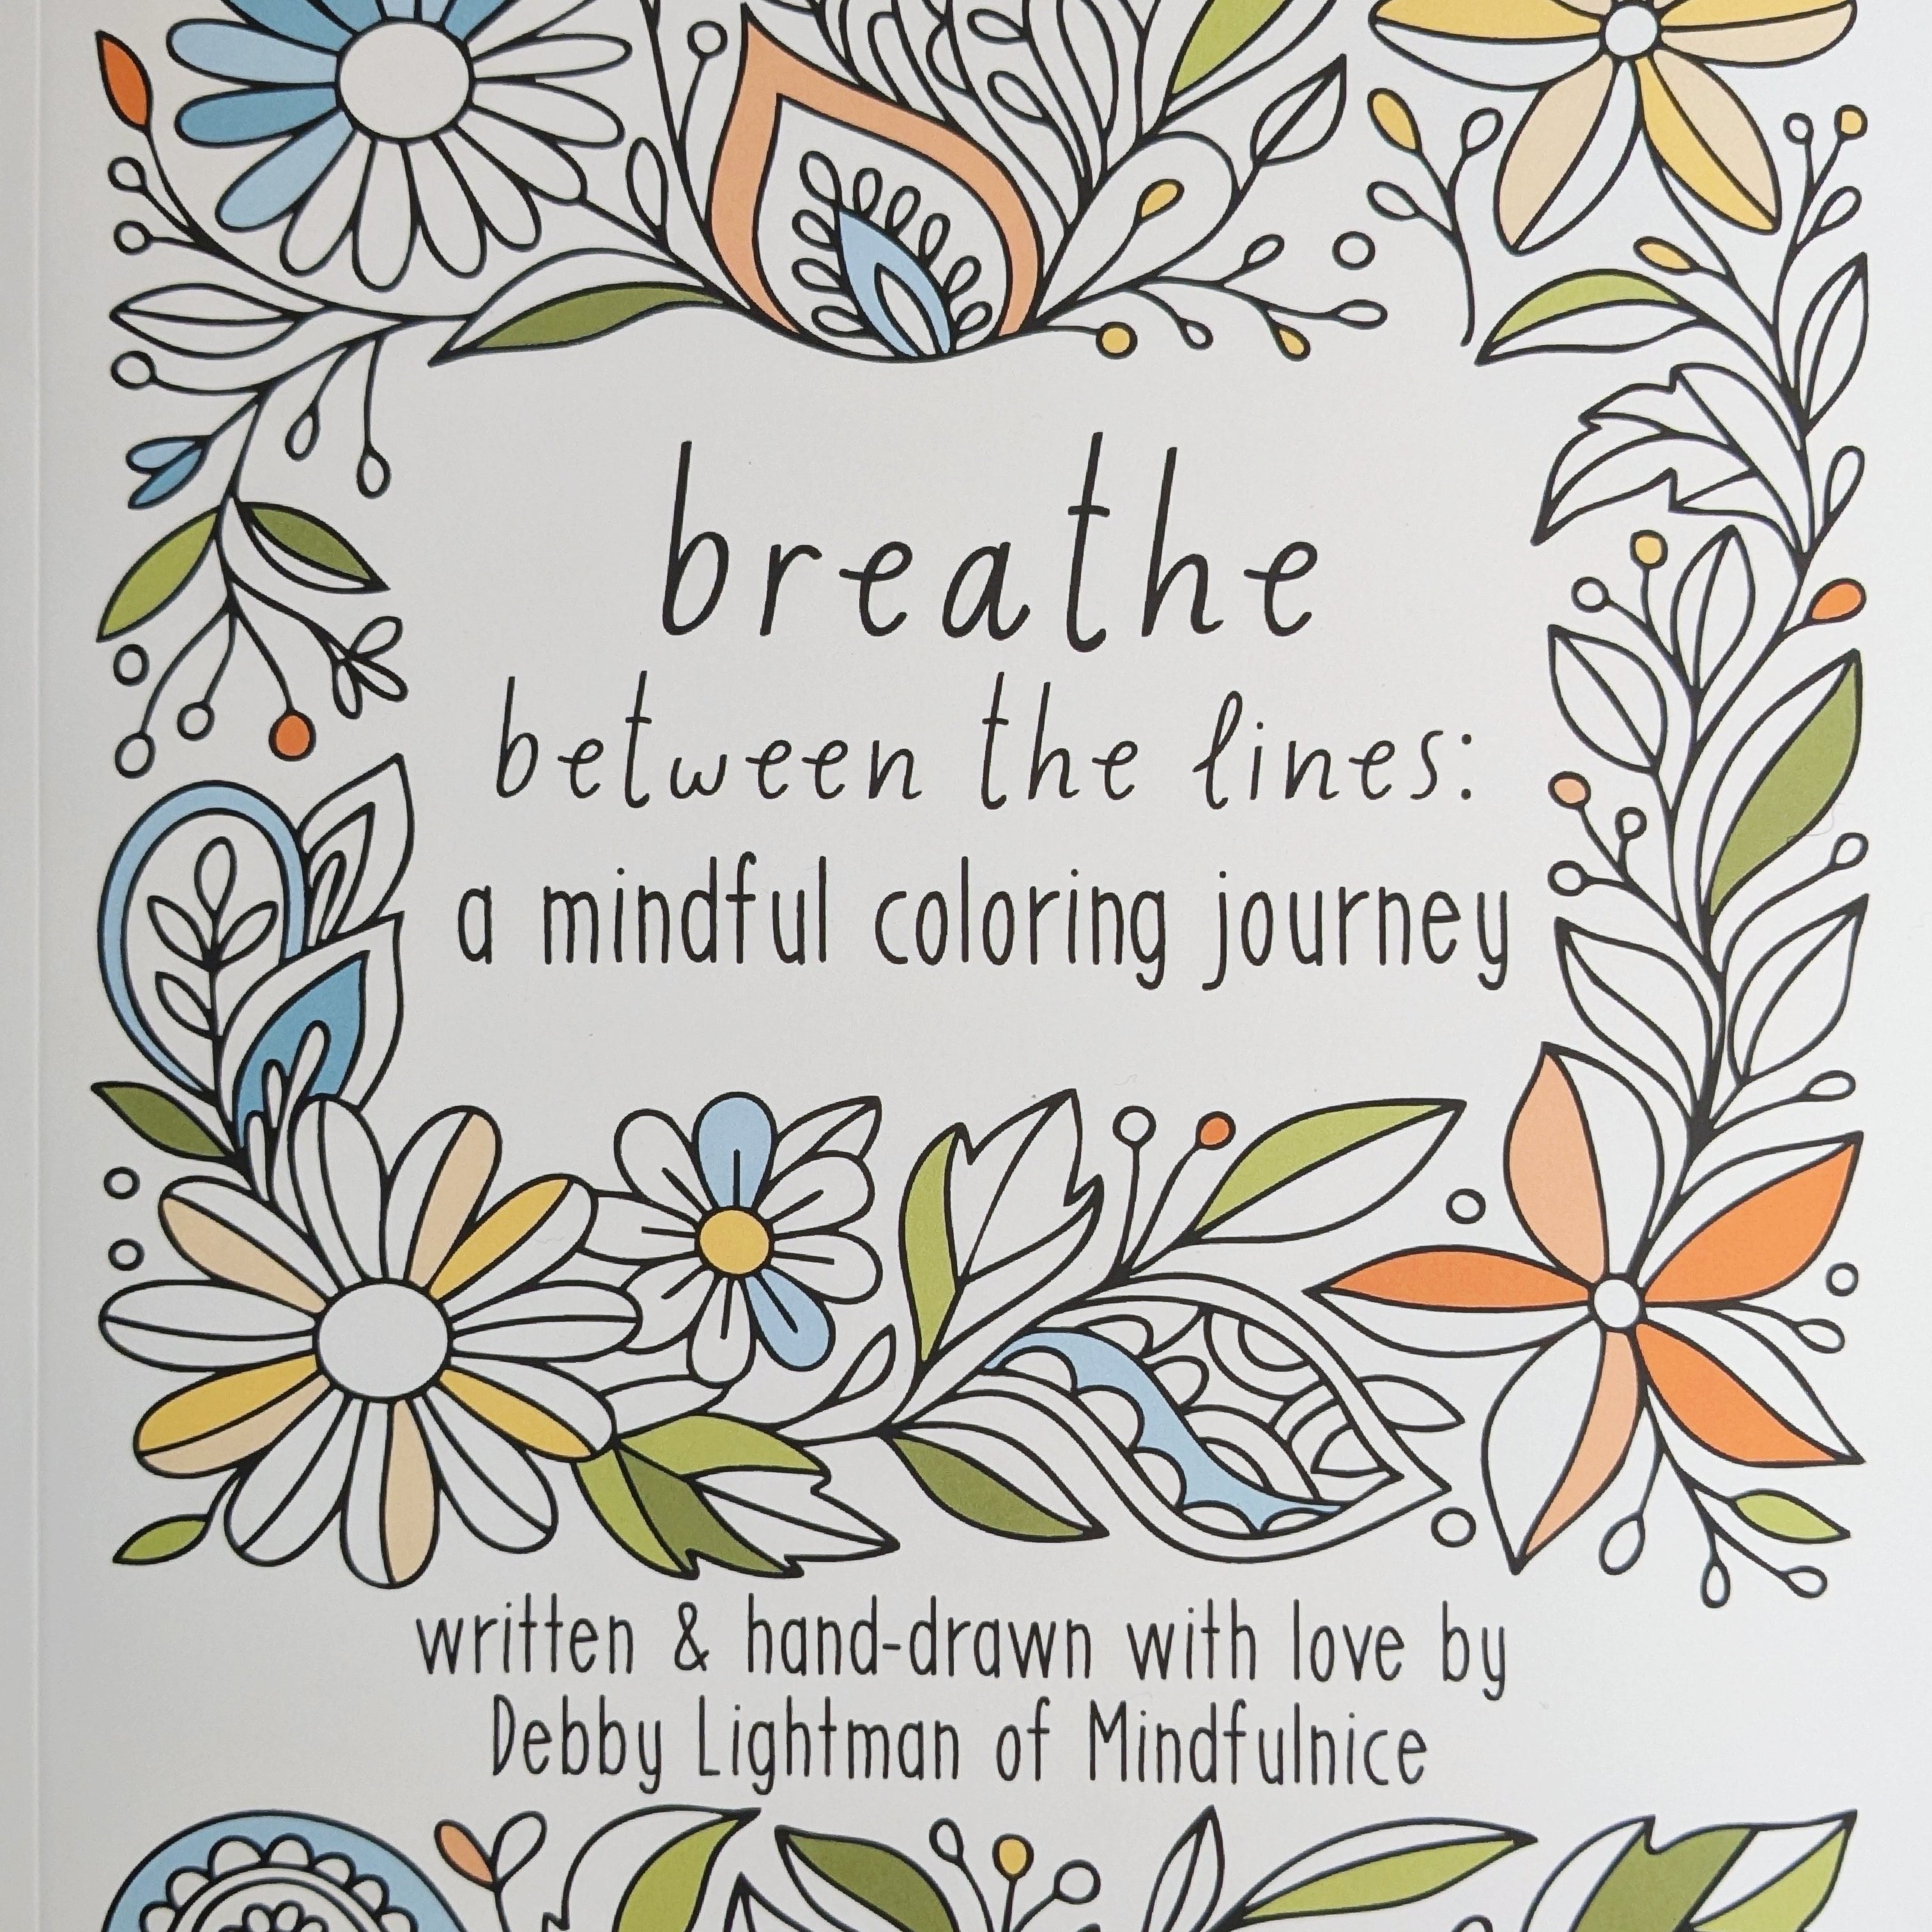 breathe
between the lines:
a mindful coloring journey
written & hand-drawn with love by
Debby Lightman of Mindfulnice